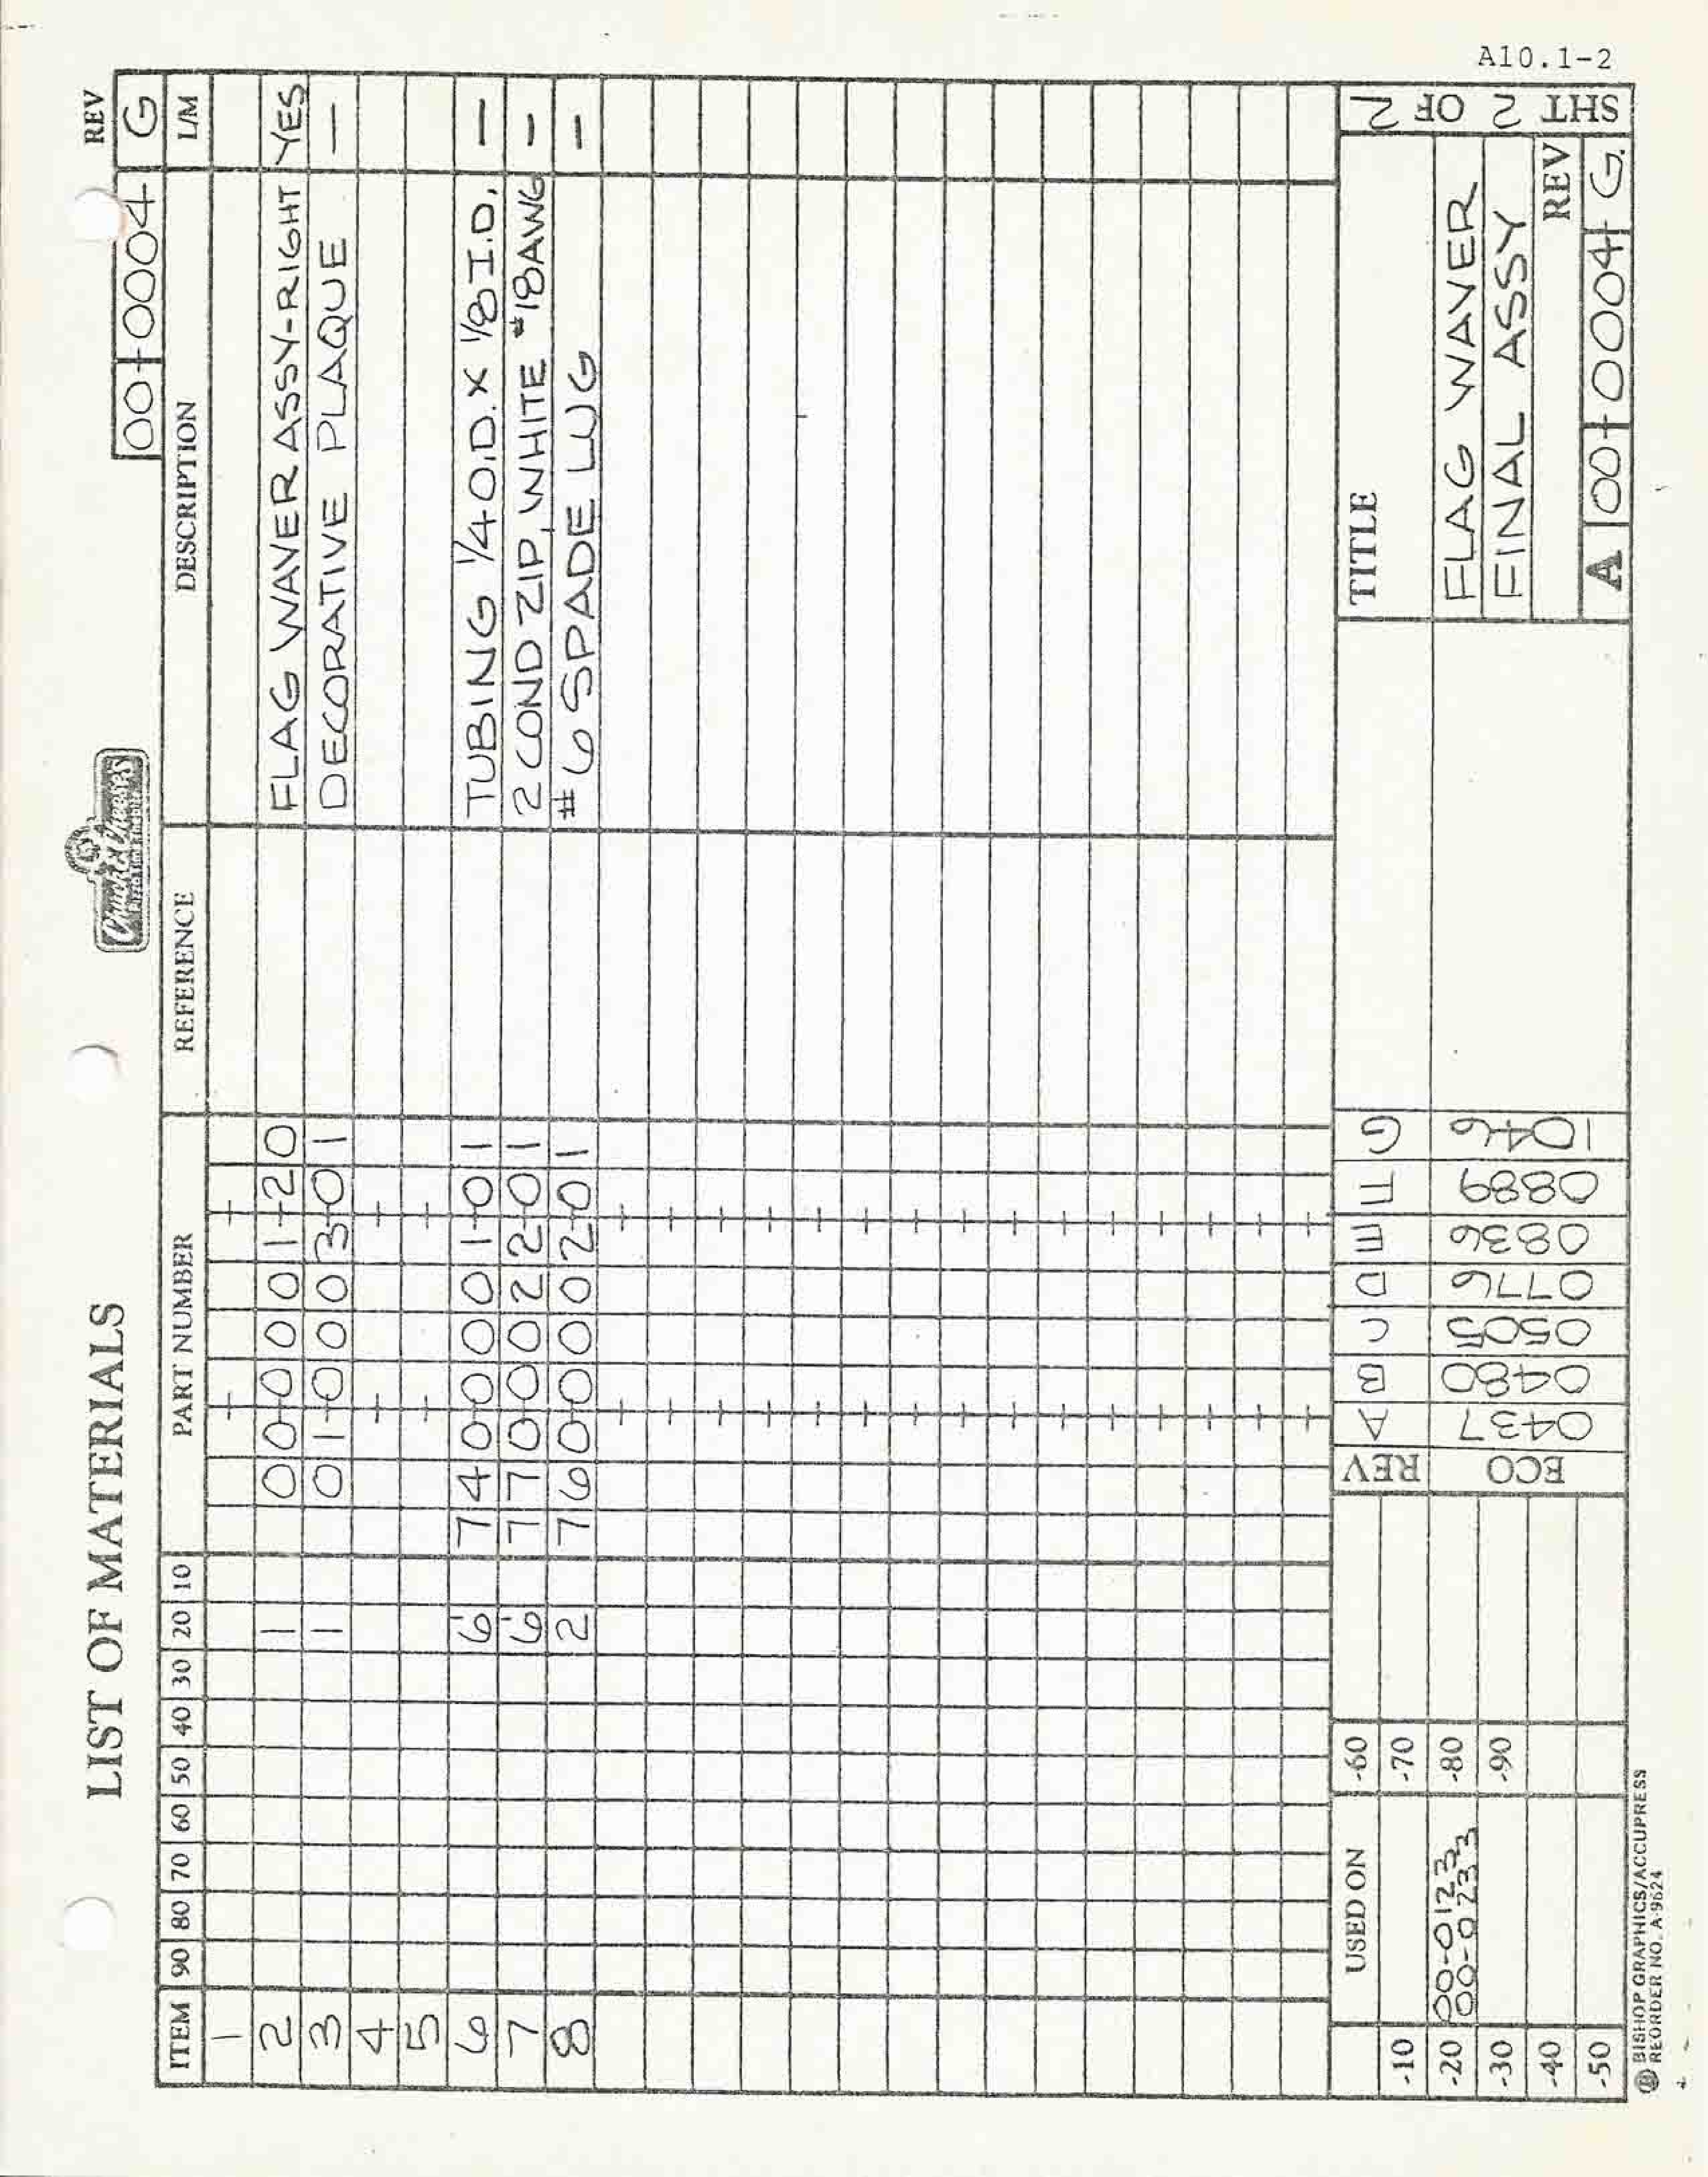 A10.1-2
LIST OF MATERIALS
Chuck E. Cheese's
REV
00-0004 G
ITEM 90 80 70 60 50 40 30 20 10 PART NUMBER REFERENCE DESCRIPTION L/M
1
2 1 00-0001-20 FLAG WAVER ASSY-RIGHT YES
3 1 01-0003-01 DECORATIVE PLAQUE —
4
5
6 6' 740-0001-01 TUBING 1/4 O.D. X 1/8 I.D. —
7 6' 770-0022-01 2 COND ZIP, WHITE #18AWG —
8 2 760-0002-01 #6 SPADE LUG —
USED ON
-10
-20 00-0123
00-0233
-30
-40
-50
-60
-70
-80
-90
REV A B C D E F G
ECO 0437 0480 0505 0776 0836 0889 1046
TITLE
FLAG WAVER
FINAL ASSY
REV
A 00-0004 G.
SHT 2 OF 2
BISHOP GRAPHICS/ACCUPRESS
REORDER NO. A-9624